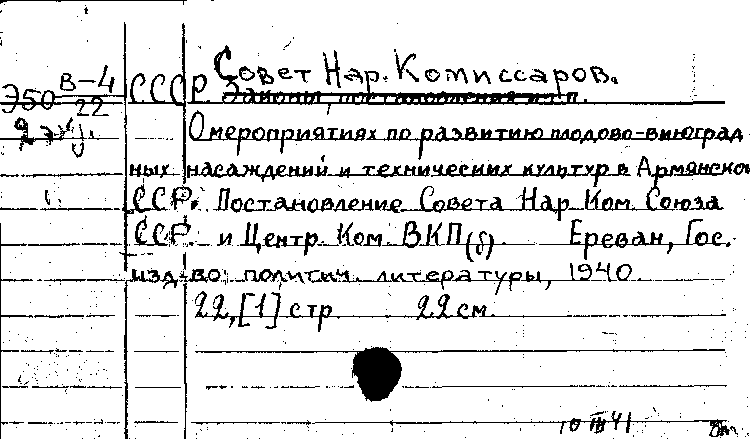 Э50 В-4/22
2 экз.
СССР. Совет Нар. Комиссаров.
Законы, постановления и т.п.
О мероприятиях по развитию плодово-виноград
ных насаждений и технических культур в Армянской
ССР. Постановление Совета Нар. Ком. Союза
ССР. и Центр. Ком. ВКП(б). Ереван, Гос.
изд-во политич. литературы, 1940.
22,[1] стр. 22 см.
10 III 41